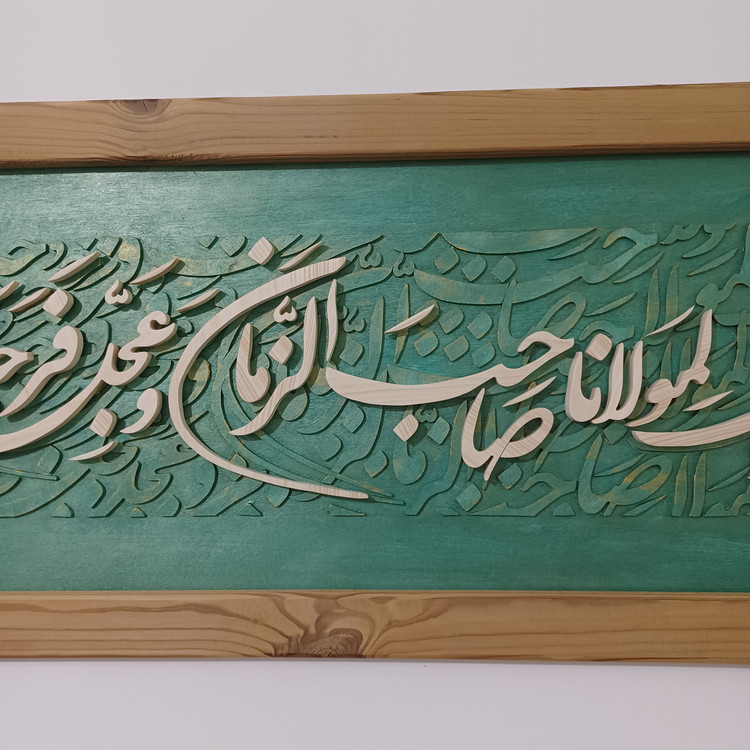 لِمَولانا صاحِبَ الزَّمان وَ عَجِّل فَرَجَ